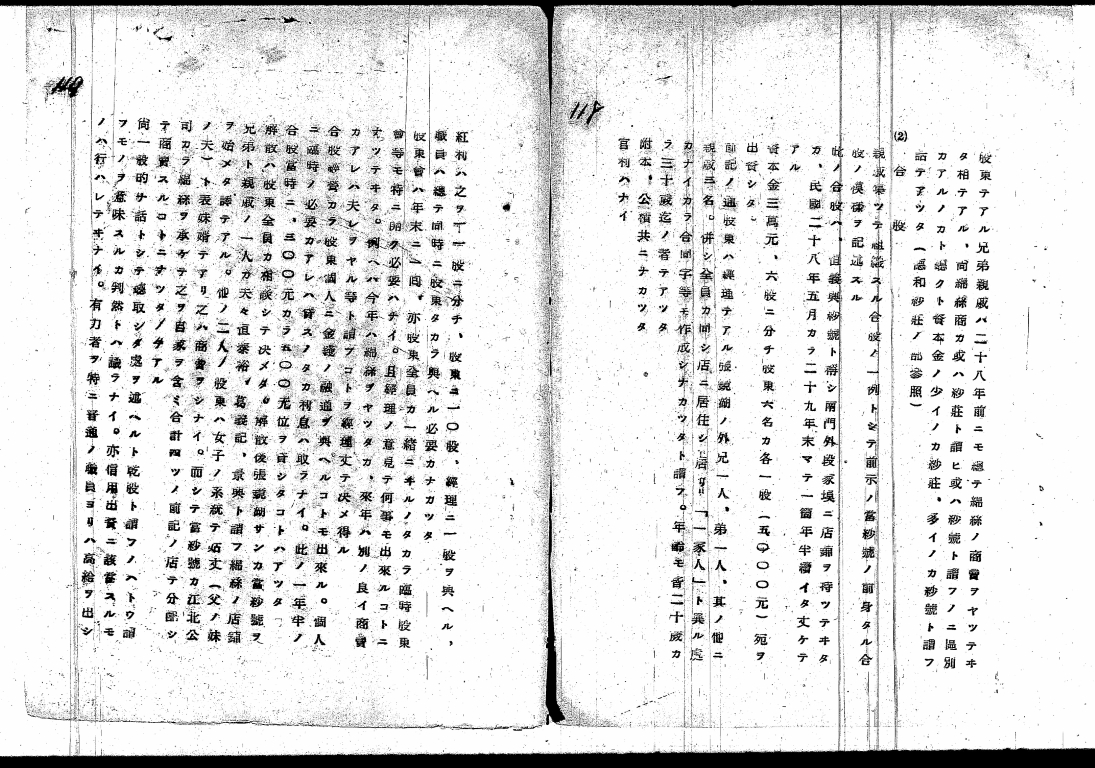 118
股東テアル兄弟親戚ハ二十八年前ニモ總テ綿絲ノ商賣ヲヤツテヰ
タ相テアル、同綿絲商カ或ハ紗莊ト謂ヒ或ハ紗號ト謂フノニ區別
カアルノカト聽クト資本金ノ少イノカ紗莊、多イノカ紗號ト謂フ
話テアツタ(德和紗莊ノ部參照)
(2) 合股
親戚集ツテ組織スル合股ノ一例トシテ前示ノ當紗號ノ前身タル合
股ノ模樣ヲ記述スル
此ノ合股ハ、恒義興紗號ト稱シ南門外段家埧ニ店鋪ヲ持ツテヰタ
カ、民國二十八年五月カラ二十九年末マテ一箇年半續イタ丈ケテ
アル
資本金三萬元、六股ニ分チ股東六名カ各一股(五〇〇〇元)宛ヲ
出資シタ
前記ノ通股東ハ經理テアル張曉湖ノ外兄一人、弟一人、其ノ他ニ
親戚三名。併シ全員カ同シ店ニ居住シテ居リ「一家人」ト異ル處
カナイカラ合同字等モ作成シナカツタト謂フ。年齡モ皆二十歲カ
ラ三十歲迄ノ者テアツタ
附本、公積共ニナカツタ
官利ハナイ
119
紅利ハ之ヲ十一股ニ分チ、股東ニ一〇股、經理ニ一股ヲ與ヘル、
職員ハ總テ同時ニ股東タカラ與ヘル必要カナカツタ
股東會ハ年末ニ一囘、亦股東全員カ一緒ニヰルノタカラ臨時股東
會等モ特ニ開ク必要ハナイ。且經理ノ意見テ何事モ出來ルコトニ
ナツテヰタ。例ヘハ今年ハ綿絲ヲヤツタカ、來年ハ別ノ良イ商賣
カアレハ夫レヲヤル等ト謂フコトヲ經理丈テ決メ得ル
合股營業カラ股東個人ニ金錢ノ融通ヲ與ヘルコトモ出來ル。個人
ニ臨時ノ必要カアレハ貸スノタカ利息ハ取ラナイ。此ノ一年半ノ
合股當時ニ、三〇〇元カラ五〇〇元位ヲ貸シタコトハアツタ
解散ハ股東全員カ相談シテ決メタ。解散後張曉湖サンカ當紗號ヲ
兄弟ト親戚ノ一人カ夫々恒泰裕、葛義記、景興ト謂フ綿絲ノ店鋪
ヲ始メタ譯テアル。他ノ二人ノ股東ハ女子ノ系統テ姑丈(父ノ妹
ノ夫)ト表妹婿テアリ之ハ商賣ヲシナイ。而シテ當紗號カ江北公
司カラ綿絲ヲ承ケテ之ヲ自家ヲ含ミ合計四ツノ前記ノ店テ分配シ
テ商賣スルコトニナツタノテアル
尙一般的ナ話トシテ聽取シタ處ヲ述ヘルト乾股ト謂フノハトウ謂
フモノヲ意味スルカ判然トハ議ラナイ。亦信用出資ニ該當スルモ
ノハ行ハレテヰナイ。有力者ヲ特ニ普通ノ職員ヨリハ高給ヲ出シ